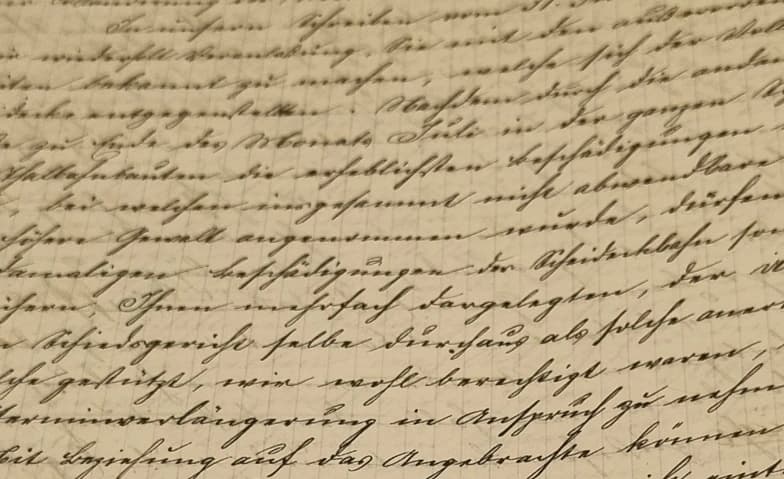 In unsern Schreiben vom 31.
wiederholt Veranlaßung, Sie mit den
bekannt zu machen, welche sich der
entgegenstellten. Nachdem durch die
zu Ende des Monats Juli in der ganzen
Thalbahnbauten die erheblichsten Beschädigungen
, bei welchen insgesammt nicht abwendbare
höhere Gewalt angenommen wurde, dürfen
damaligen Beschädigungen der Scheideckbahn
Ihnen mehrfach dargelegten, der
Schiedsgericht selbe durchaus als solche
gestützt, wir wohl berechtigt waren,
Terminverlängerung in Anspruch zu
Mit Beziehung auf das Angebrachte können